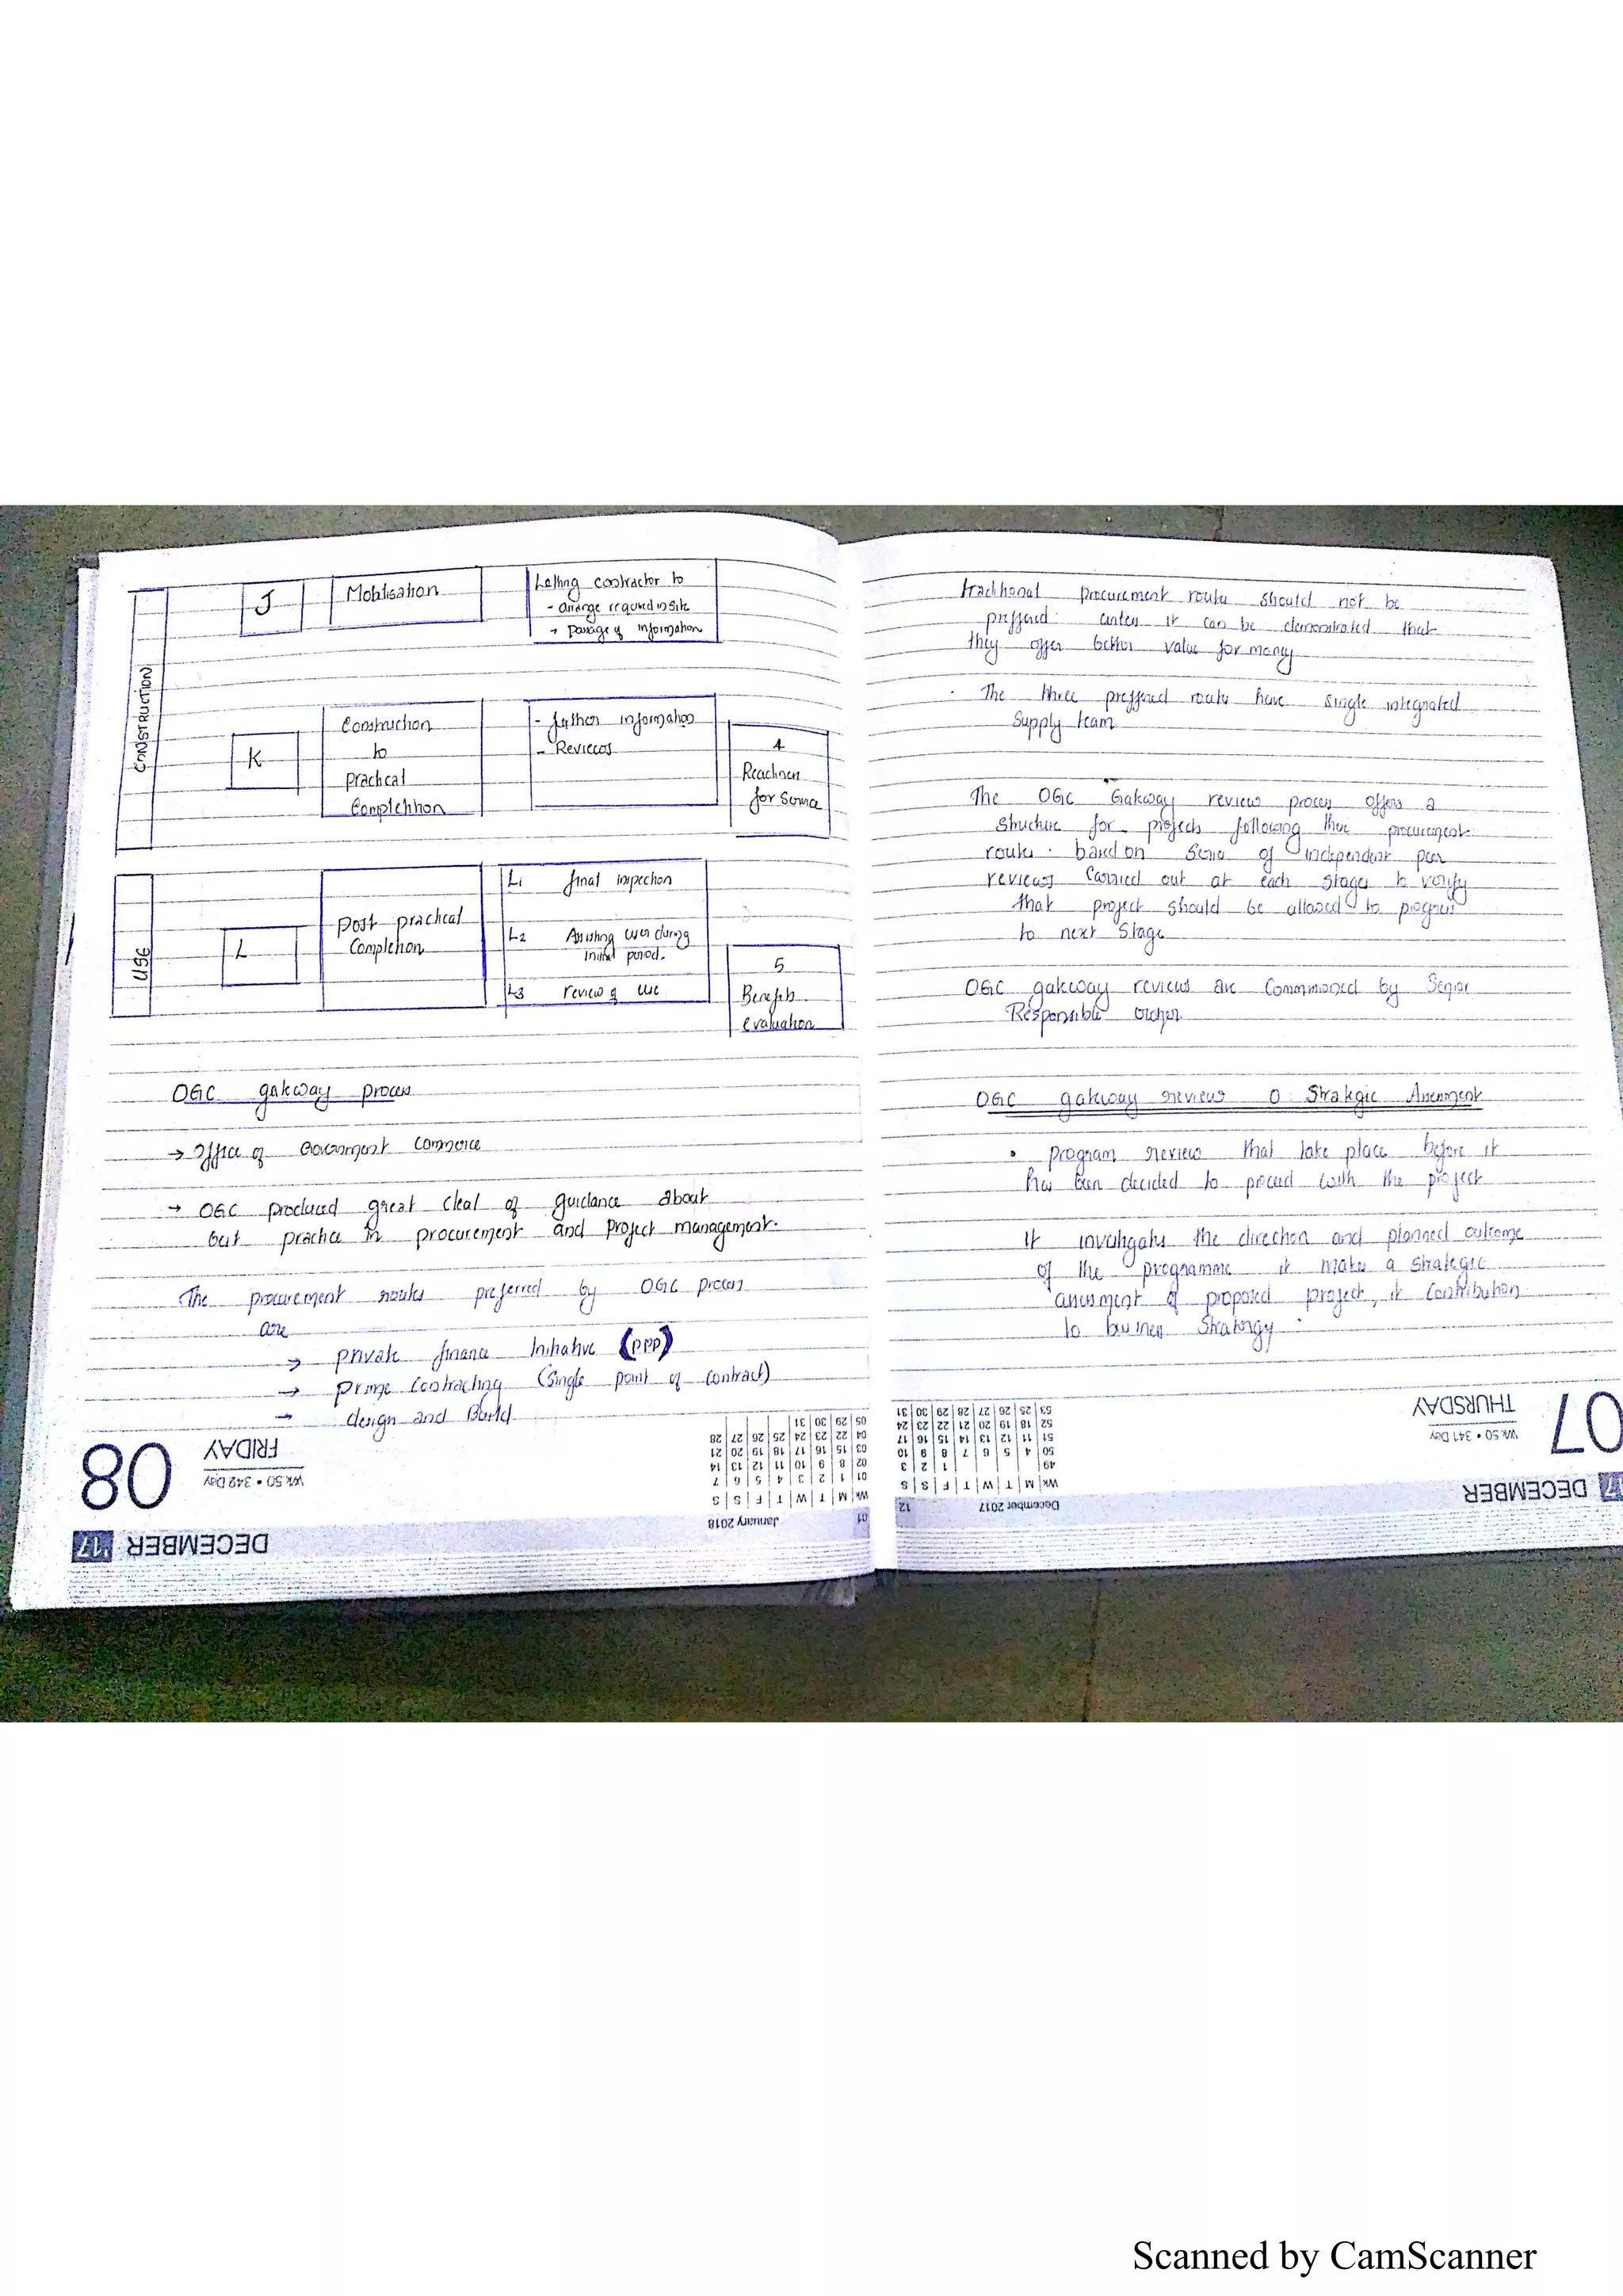 CONSTRUCTION
J
Mobilisation
Letting contractor to
- arrange required in site
→ passage of information
K
Construction
to
practical
Complehhon
- futher information
- Reviews
4
Readiness
for Service
USE
L
post prachcal
Complehon
L1 final inspection
L2 Assisting user during
initial period.
L3 review of use
5
Benefits
evaluation
OGC gateway process
→ Office of Government Commerce
→ OGC produced great deal of guidance about
best practice in procurement and project management.
The procurement routes preferred by OGC process
are
→ private finance Initiative (PPP)
→ prime contracting (single point of contract)
→ design and Build
08
FRIDAY
Wk 50 • 342 Day
05 29 30 31
04 22 23 24 25 26 27 28
03 15 16 17 18 19 20 21
02 8 9 10 11 12 13 14
01 1 2 3 4 5 6 7
Wk M T W T F S S
01 January 2018
'17 DECEMBER
traditional procurement routes should not be
preffered unless it can be demonstrated that
they offer better value for money
· The three preffered routes have single integrated
Supply team
The OGC Gateway review process offers a
structure for projects following these procurement
routes. based on series of independent peer
reviews Carried out at each stages to verify
that project should be allowed to progress
to next stage
OGC gateway reviews are Commmioned by Senior
Responsible owner.
OGC gateway review 0 Strategic Assessment
• program review that take place before it
has been decided to proceed with the project
It investigates the direction and planned outcome
of the programme it makes a strategic
assesment of proposed project, it Contribution
to business Stratergy.
07
THURSDAY
Wk 50 • 341 Day
53 25 26 27 28 29 30 31
52 18 19 20 21 22 23 24
51 11 12 13 14 15 16 17
50 4 5 6 7 8 9 10
49 1 2 3
Wk M T W T F S S
December 2017 12
DECEMBER
Scanned by CamScanner